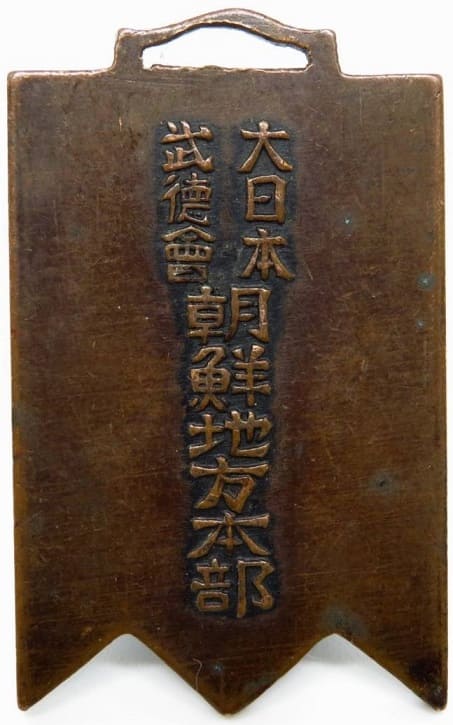 大日本
武德會
朝鮮地方本部